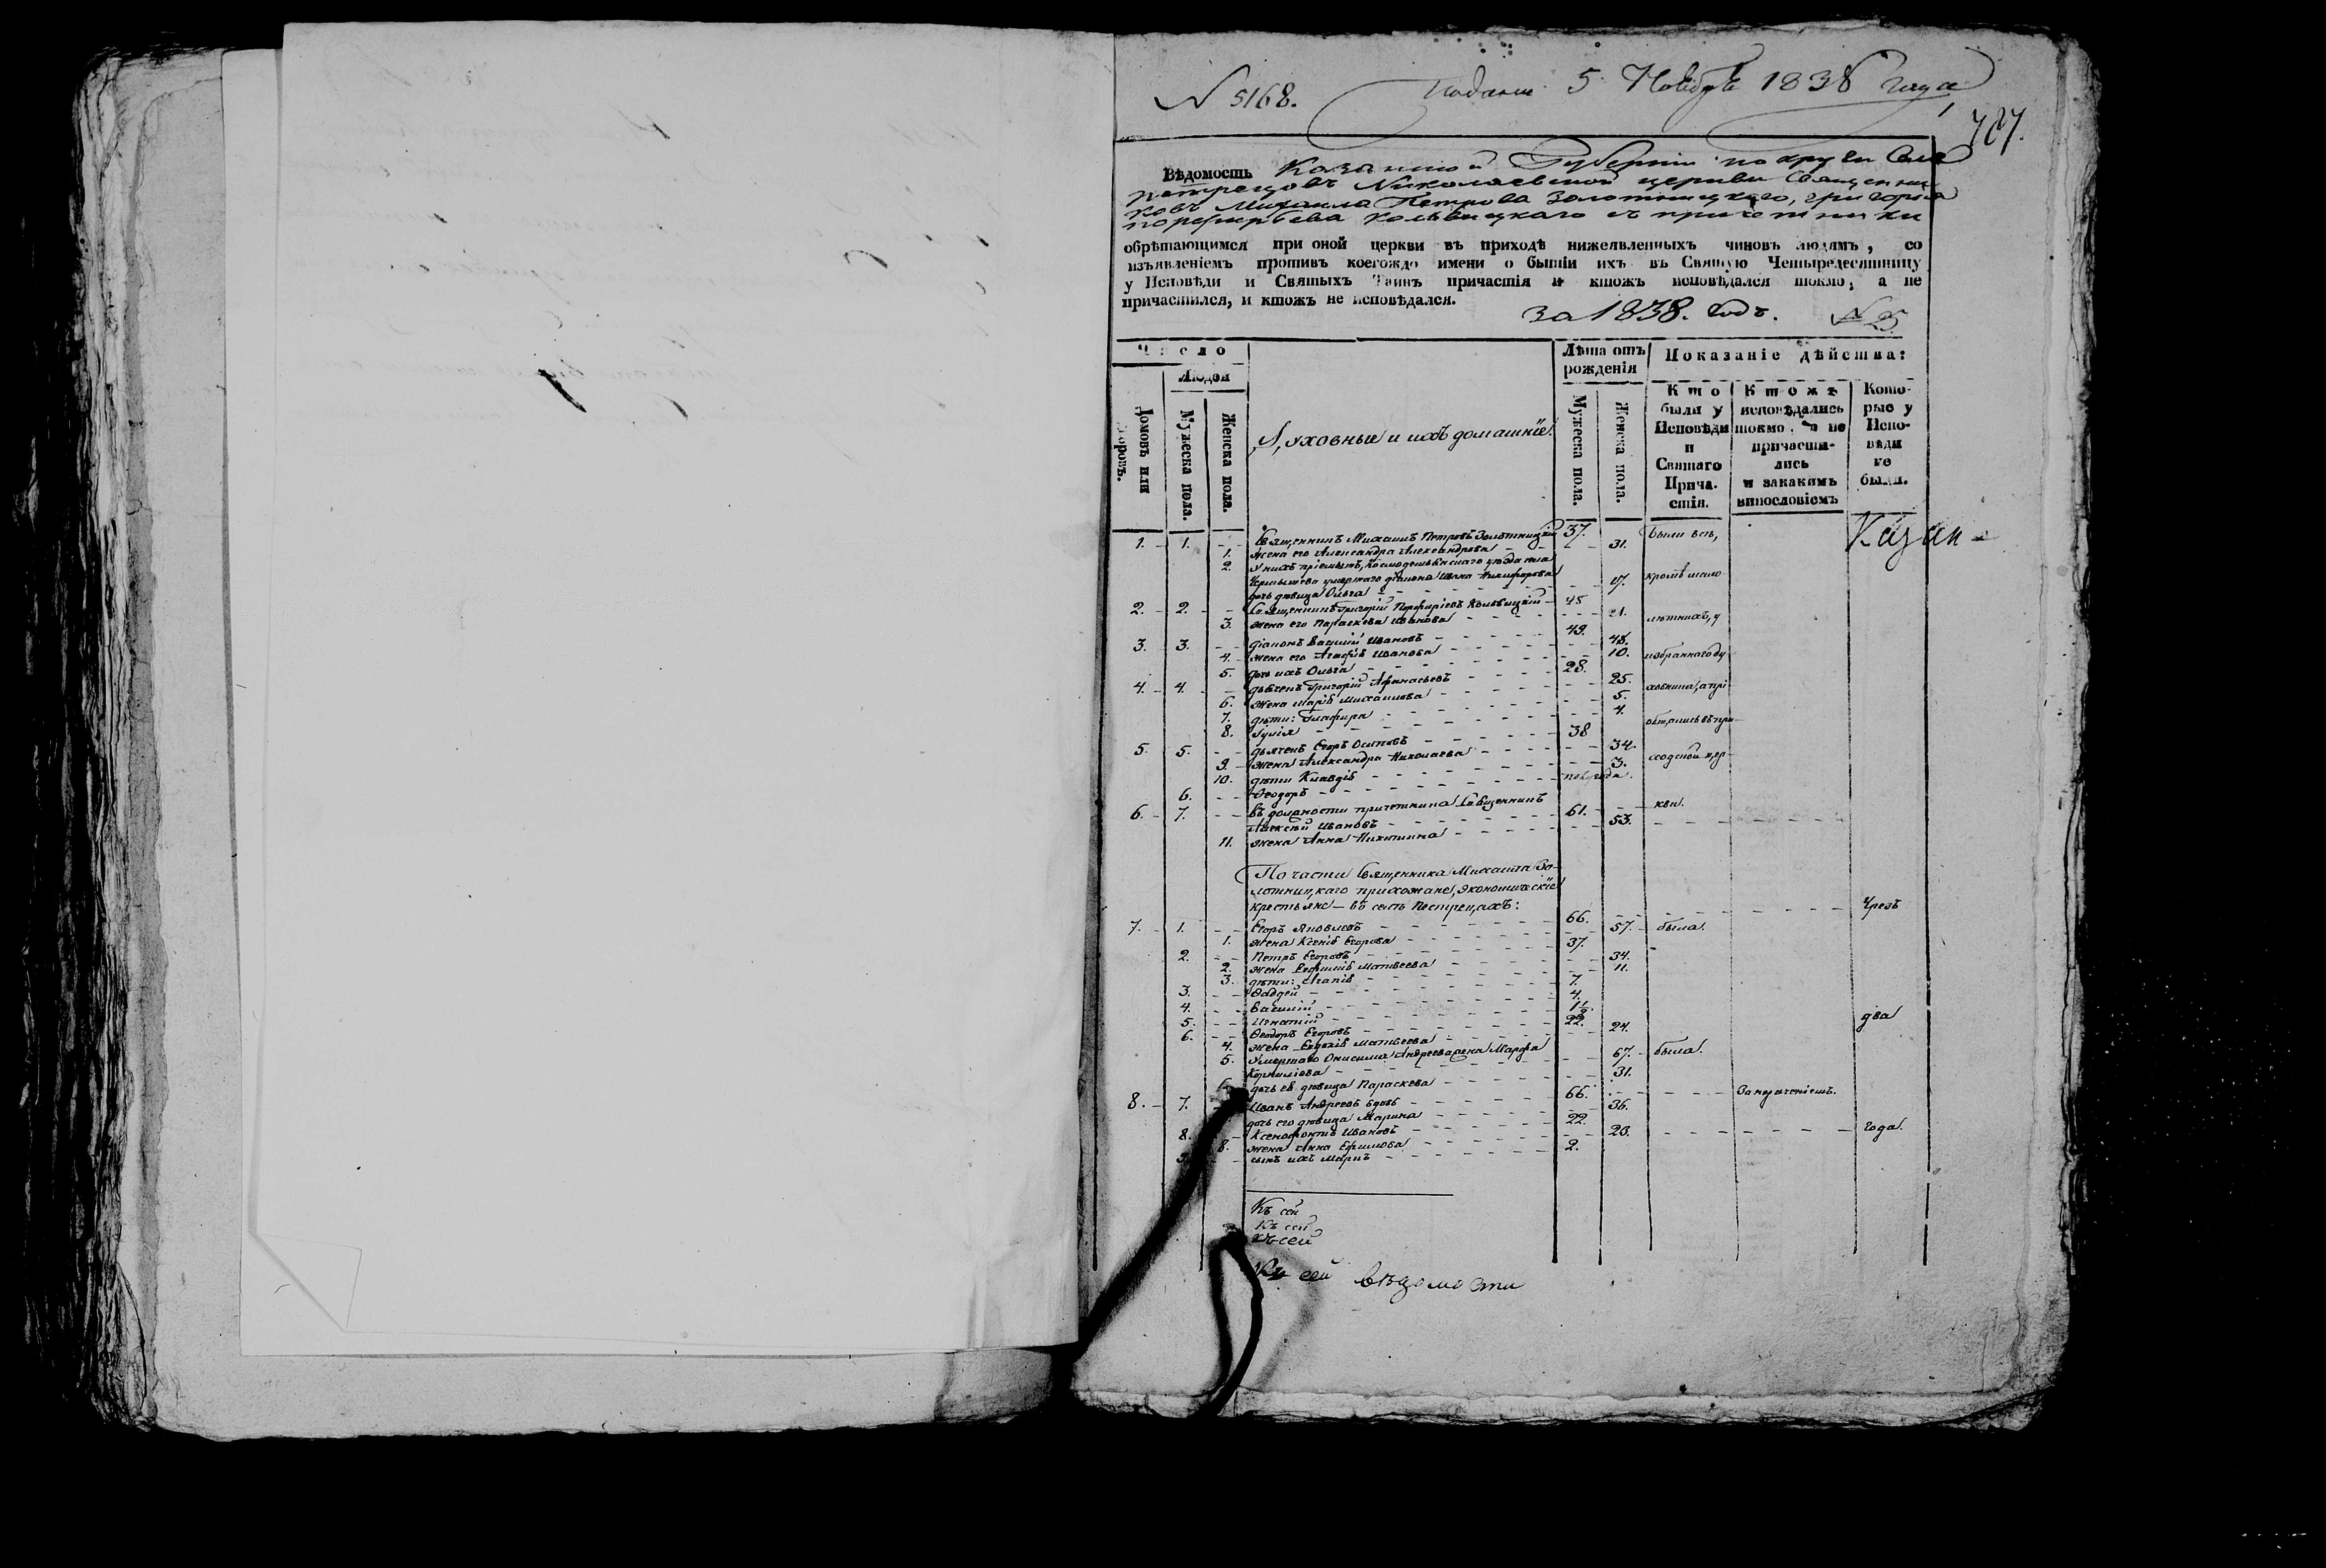 N 5168. Подана 5 Ноября 1838 года
787.
Вѣдомость Казанской Губерніи по округи Села
пестрецовъ Николаевской церкви Священни-
ковъ Михаила Петрова Золотницкаго, Григорья
порфирьева Кольвицкаго съ причетники
обрѣтающимся при оной церкви въ приходѣ нижеявленныхъ чиновъ людямъ, со
изъявленіемъ противъ коегождо имени о бытіи ихъ въ Святую Четыредесятницу
у Исповѣди и Святыхъ Таинъ причастія и ктожъ исповѣдался токмо, а не
причастился, и ктожъ не исповѣдался.
за 1838. годъ. N 25
Число
Людей
Домовъ или дворовъ.
Мужеска пола.
Женска пола.
Духовные и ихъ домашніе.
Лѣта отъ рожденія
Мужеска пола.
Женска пола.
Показаніе дѣйства:
Кто были у Исповѣди и Святаго Причастія.
Ктожъ исповѣдались токмо, а не причастились и закакимъ винословіемъ
Которые у Исповѣди не были.
Казан-
1. 1. Священникъ Михаилъ Петровъ Золотницкій 37. были всѣ,
1. жена его Александра Александрова 31.
2. У нихъ пріемышъ, Козмодемьянскаго уѣзда села
умершаго діакона Ивана Никифорова
дочь дѣвица Ольга 17. кромѣ мало-
2. 2. Священникъ Григорій Порфиріевъ Кольвицкій 28
3. жена его Параскева Иванова 21. лѣтнихъ, у
3. 3. діаконъ Василій Ивановъ 49.
4. жена его Агафія Иванова 48.
5. дочь ихъ Ольга 10. избраннаго ду-
4. 4. дьячекъ Григорій Афанасьевъ 28.
6. жена Марія Михаилова 25. ховника, а прі-
7. дѣти: Глафира 5.
8. Іулія 4. общались въ при-
5. 5. дьячекъ Егоръ Осиповъ 38
9. жена Александра Николаева 34. ходской цер-
10. дѣти Клавдія 3.
6. Феодоръ полгода.
6. 7. въ должности причетника Священникъ
Алексій Ивановъ 61. кви.
11. жена Анна Никитина 53.
По части Священника Михаила Зо-
лотницкаго прихожане, экономическіе
крестьяне — въ селѣ Пестрецахъ:
7. 1. Егоръ Яковлевъ 66. Чрезъ
1. жена Ксенія Егорова 57. была.
2. Петръ Егоровъ 37.
2. жена Евфимія Матвеева 34.
3. дѣти: Агапія 11.
3. Фаддей 7.
4. Василій 4.
5. Игнатій 1½.
6. Феодоръ Егоровъ 22. два
4. жена Евдокія Матвеева 24.
5. Умершаго Онисима Андреева жена Марфа
Корнилова 67. была.
6. дочь ея дѣвица Параскева 31.
8. 7. Иванъ Андреевъ вдовъ 66. За нераченіемъ.
дочь его дѣвица Марина 36.
8. Ксенофонтъ Ивановъ 22. года.
8. жена Анна Ефимова 23.
9. сынъ ихъ Маркъ 2.
Къ сей
Къ сей
къ сей
Къ сей вѣдомости